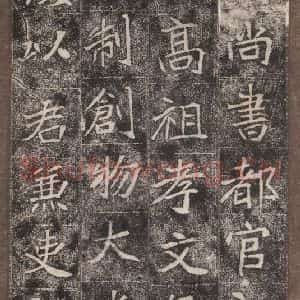 尚書都官
髙祖孝文
制創物大
以君兼吏